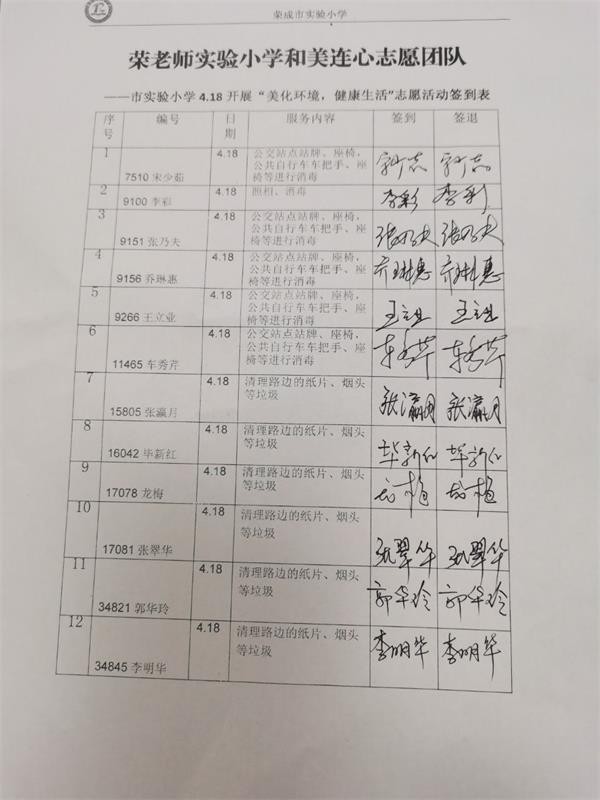 荣成市实验小学
荣老师实验小学和美连心志愿团队
——市实验小学4.18开展“美化环境，健康生活”志愿活动签到表
序号 编号 日期 服务内容 签到 签退
1 7510 宋少茹 4.18 公交站点站牌、座椅，
公共自行车车把手、座
椅等进行消毒
2 9100 李彩 4.18 照相、消毒 李彩 李彩
3 9151 张乃夫 4.18 公交站点站牌、座椅，
公共自行车车把手、座
椅等进行消毒 张乃夫 张乃夫
4 9156 乔琳惠 4.18 公交站点站牌、座椅，
公共自行车车把手、座
椅等进行消毒 乔琳惠 乔琳惠
5 9266 王立业 4.18 公交站点站牌、座椅，
公共自行车车把手、座
椅等进行消毒 王立业 王立业
6 11465 车秀芹 4.18 公交站点站牌、座椅，
公共自行车车把手、座
椅等进行消毒 车秀芹 车秀芹
7 15805 张瀛月 4.18 清理路边的纸片、烟头
等垃圾 张瀛月 张瀛月
8 16042 毕新红 4.18 清理路边的纸片、烟头
等垃圾 毕新红 毕新红
9 17078 龙梅 4.18 清理路边的纸片、烟头
等垃圾 龙梅 龙梅
10 17081 张翠华 4.18 清理路边的纸片、烟头
等垃圾 张翠华 张翠华
11 34821 郭华玲 4.18 清理路边的纸片、烟头
等垃圾 郭华玲 郭华玲
12 34845 李明华 4.18 清理路边的纸片、烟头
等垃圾 李明华 李明华